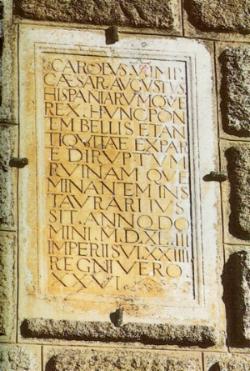 CAROLVS V IMP
CÆSAR AVGVSTVS
HISPANIARVMQVE
REX HVNC PON
TEM BELLIS ET AN
TIQVITAE EX PAR
TE DIRVPTVM
RVINAMQVE
MINANTEM INS
TAVRARI IVS
SIT. ANNO. DO
MINI. M. D. XL. III
IMPERII SVI. XXIIII
REGNI VERO
XXVI